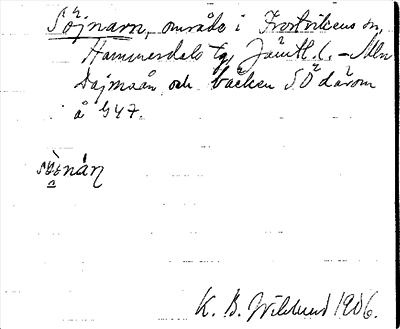 Söjnarn, område i Frostvikens sn,
Hammerdals tg, Jämtl. l. – Mln
Dajmaån och bäcken SO därom
å G 47.
nån
K. B. Wiklund 1906.